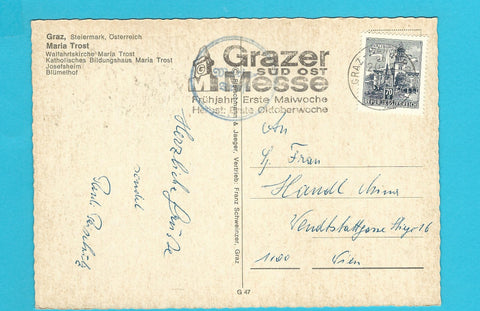 Graz, Steiermark, Österreich
Maria Trost
Wallfahrtskirche Maria Trost
Katholisches Bildungshaus Maria Trost
Josefsheim
Blümelhof
Grazer
SÜD OST
Messe
Frühjahr: Erste Maiwoche
Herbst: Erste Oktoberwoche
GRAZ
REPUBLIK ÖSTERREICH
Herzliche Grüße
sendet
& Jaeger, Vertrieb: Franz Schweinzer, Graz
An
Frau
Handl Anna
1100 Wien
G 47